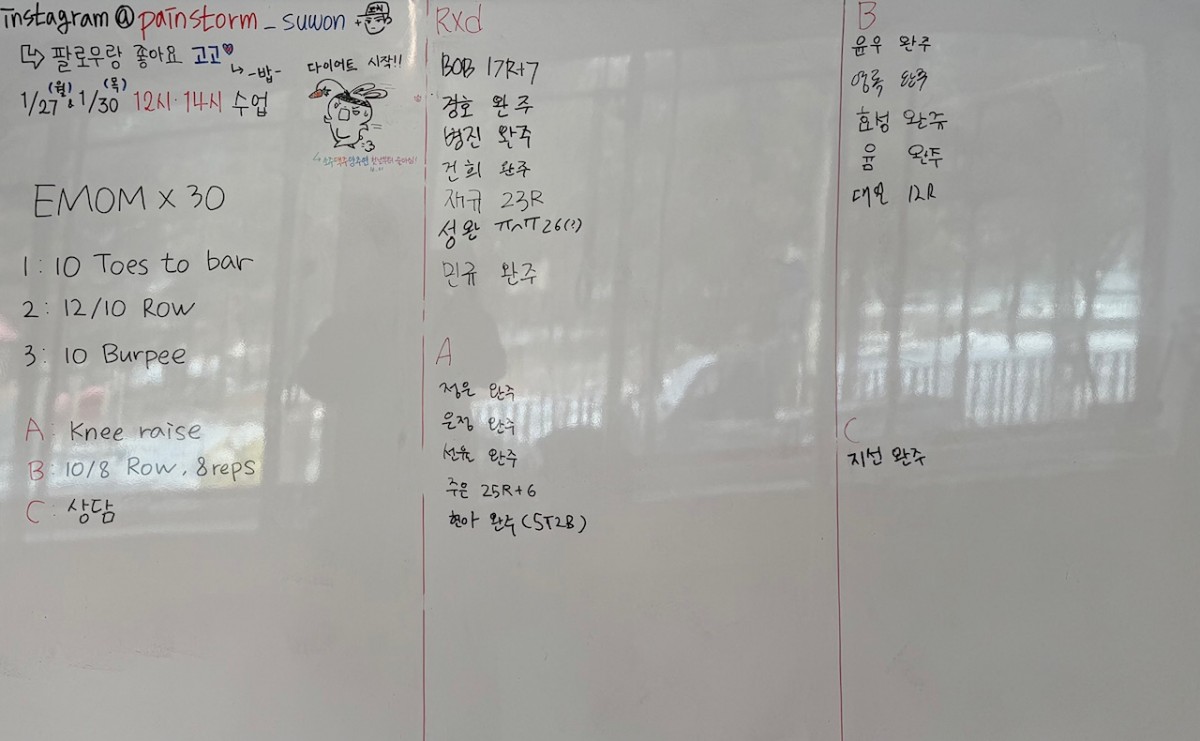 instagram @ painstorm_suwon
↳ 팔로우랑 좋아요 고고♥
↳ -밥-
1/27(월) & 1/30(목) 12시·14시 수업
다이어트 시작!!
EMOM x 30
1: 10 Toes to bar
2: 12/10 Row
3: 10 Burpee
A: Knee raise
B: 10/8 Row, 8reps
C: 상담
Rxd
BOB 17R+7
경호 완주
병진 완주
건희 완주
재규 23R
성완 ㅠㅅㅠ 26(?)
민규 완주
A
정은 완주
은정 완주
선율 완주
주은 25R+6
현아 완주 (5T2B)
B
윤우 완주
영록 완주
효성 완주
윰 완주
대원 12R
C
지선 완주